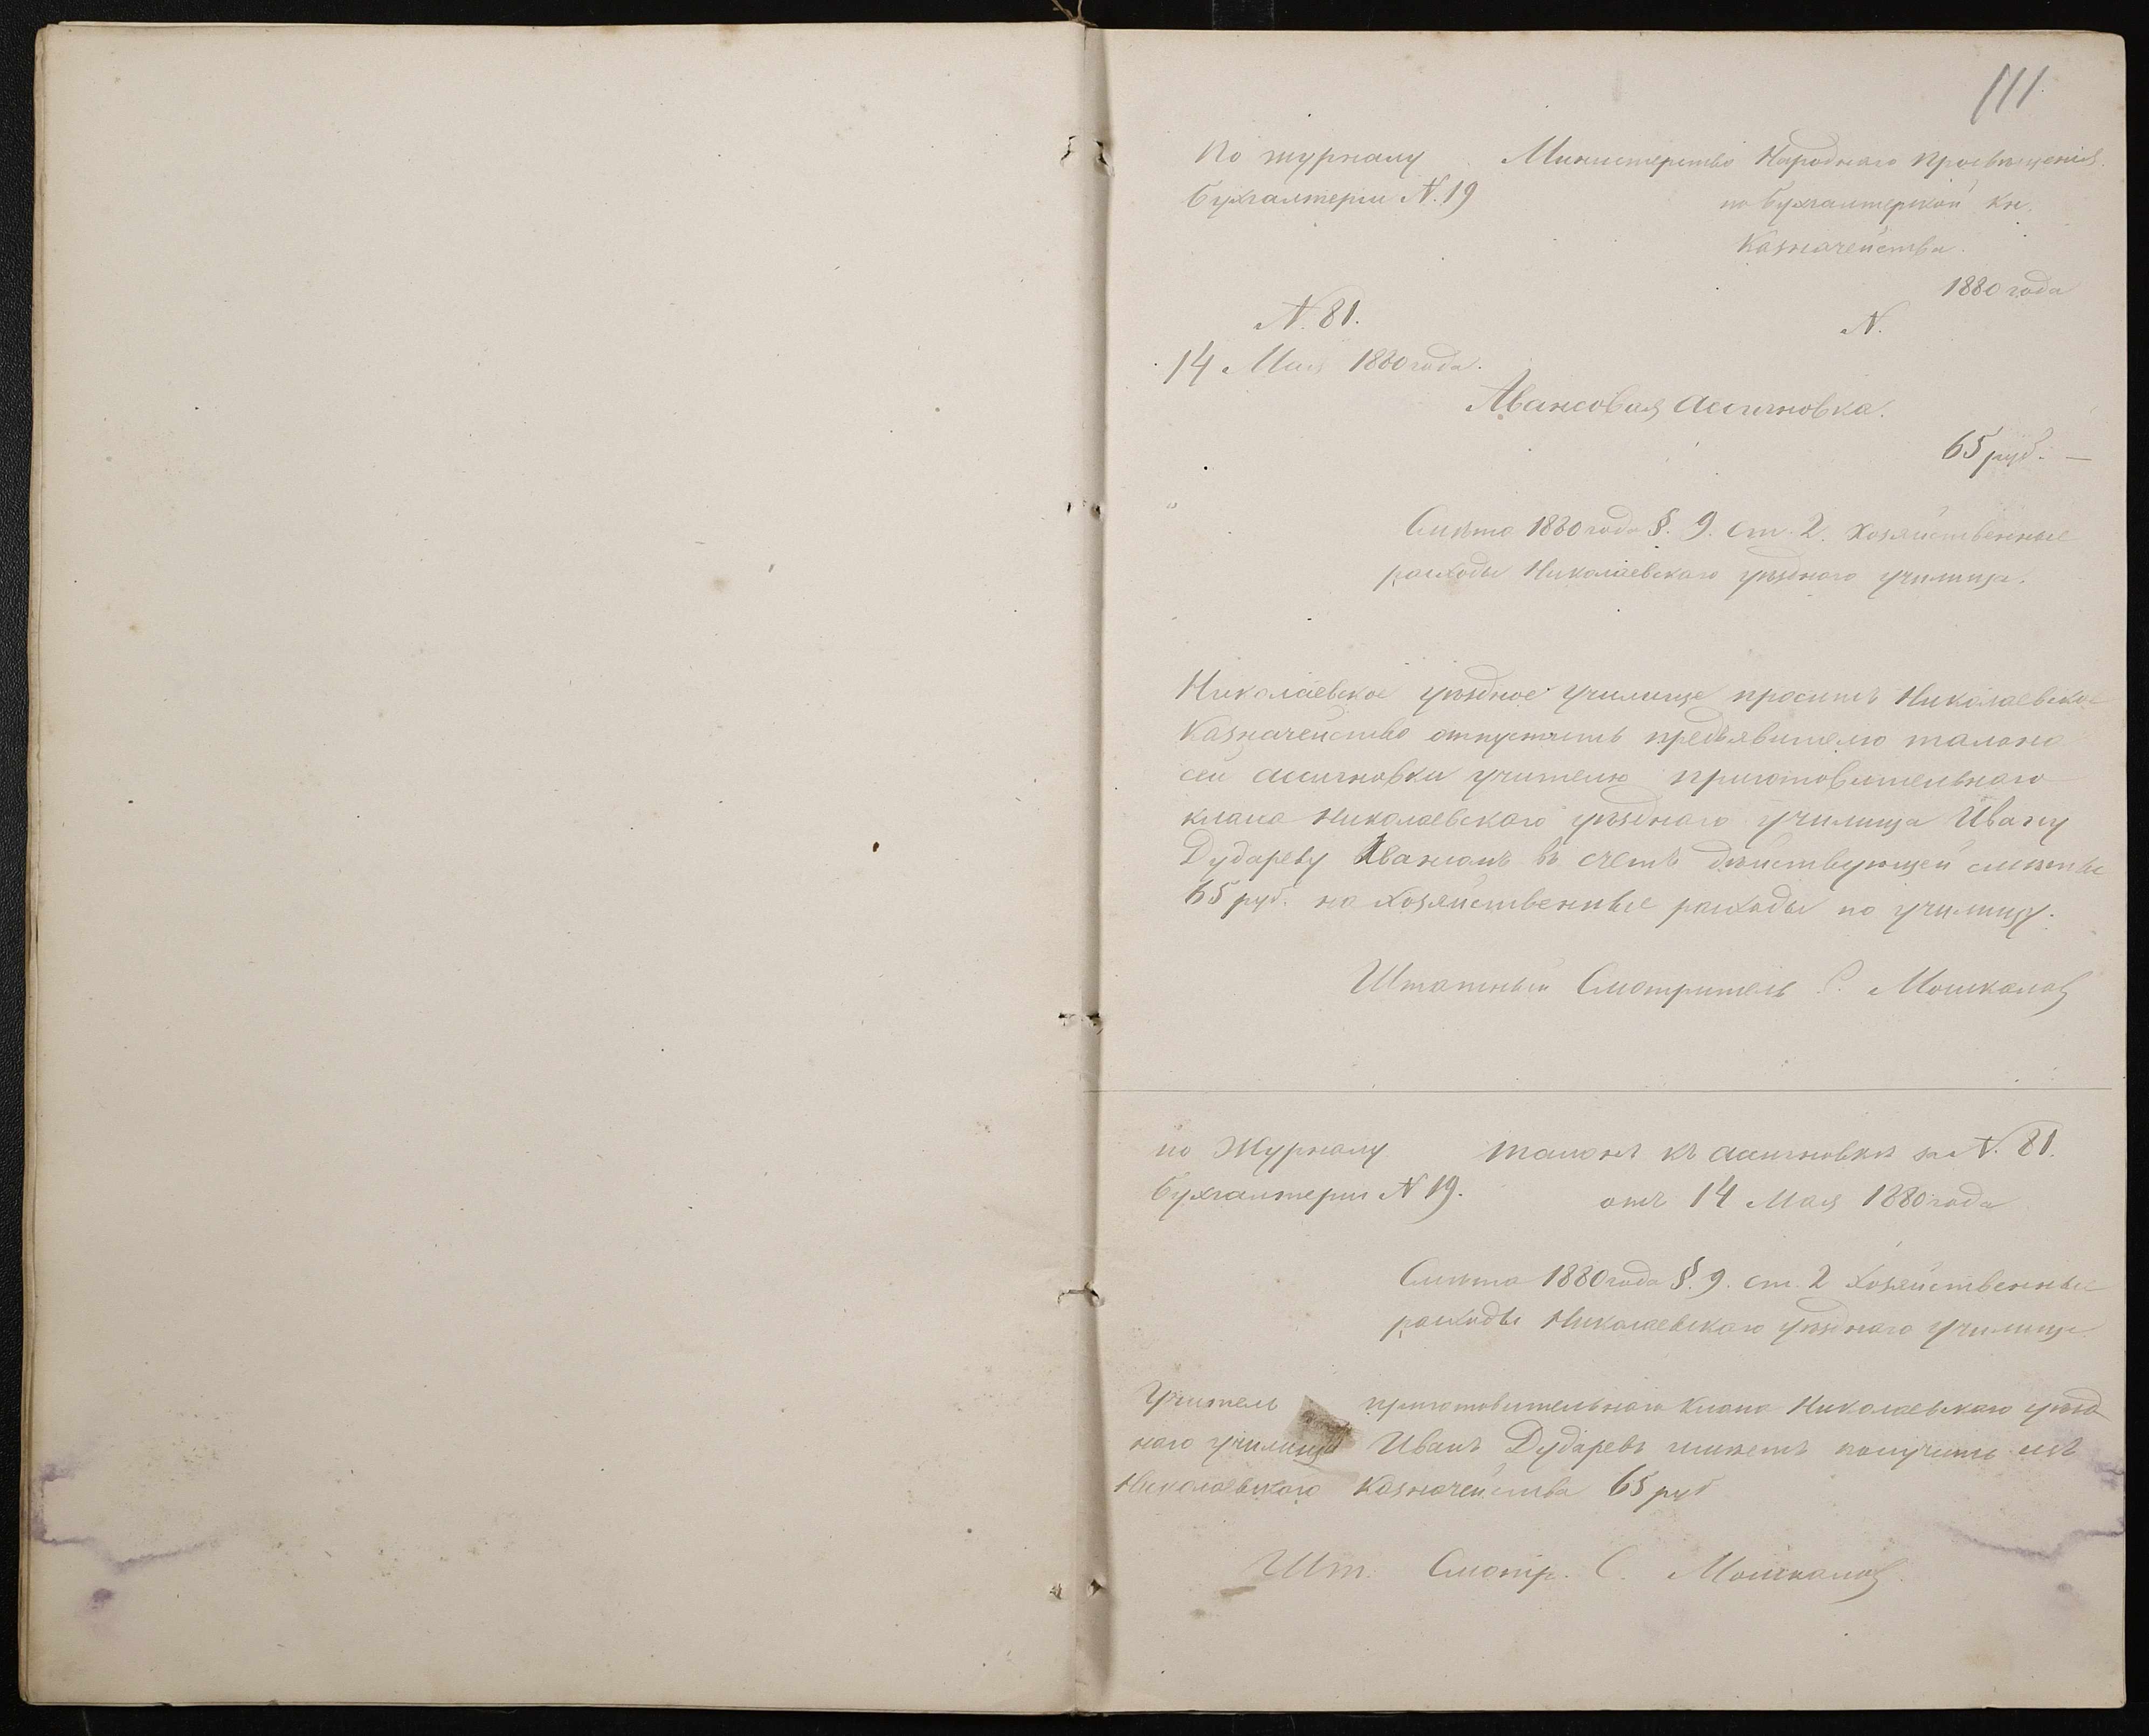 111
По журналу
бухгалтеріи N. 19
Министерство Народнаго Просвѣщенія.
по бухгалтерской кн.
Казначейства.
1880 года
N. 81.
N.
14 Мая 1880 года.
Авансовая Ассигновка.
65 руб. —
Смѣта 1880 года §. 9. ст. 2. Хозяйственные
расходы Николаевскаго уѣзднаго училища.
Николаевское уѣздное училище проситъ Николаевское
Казначейство отпустить предъявителю талона
сей ассигновки учителю приготовительнаго
класса Николаевскаго уѣзднаго училища Ивану
Дудареву Авансомъ въ счетъ дѣйствующей смѣты
65 руб. на хозяйственные расходы по училищу.
Штатный Смотритель С. Мошкалов
по Журналу
бухгалтеріи N 19.
Талонъ къ ассигновкѣ за N. 81.
отъ 14 Мая 1880 года
Смѣта 1880 года §. 9. ст. 2 Хозяйственные
расходы Николаевскаго уѣзднаго училища
Учитель приготовительнаго класса Николаевскаго уѣзд
наго училища Иванъ Дударевъ можетъ получить изъ
Николаевскаго Казначейства 65 руб
Шт. Смотр. С. Мошкалов.